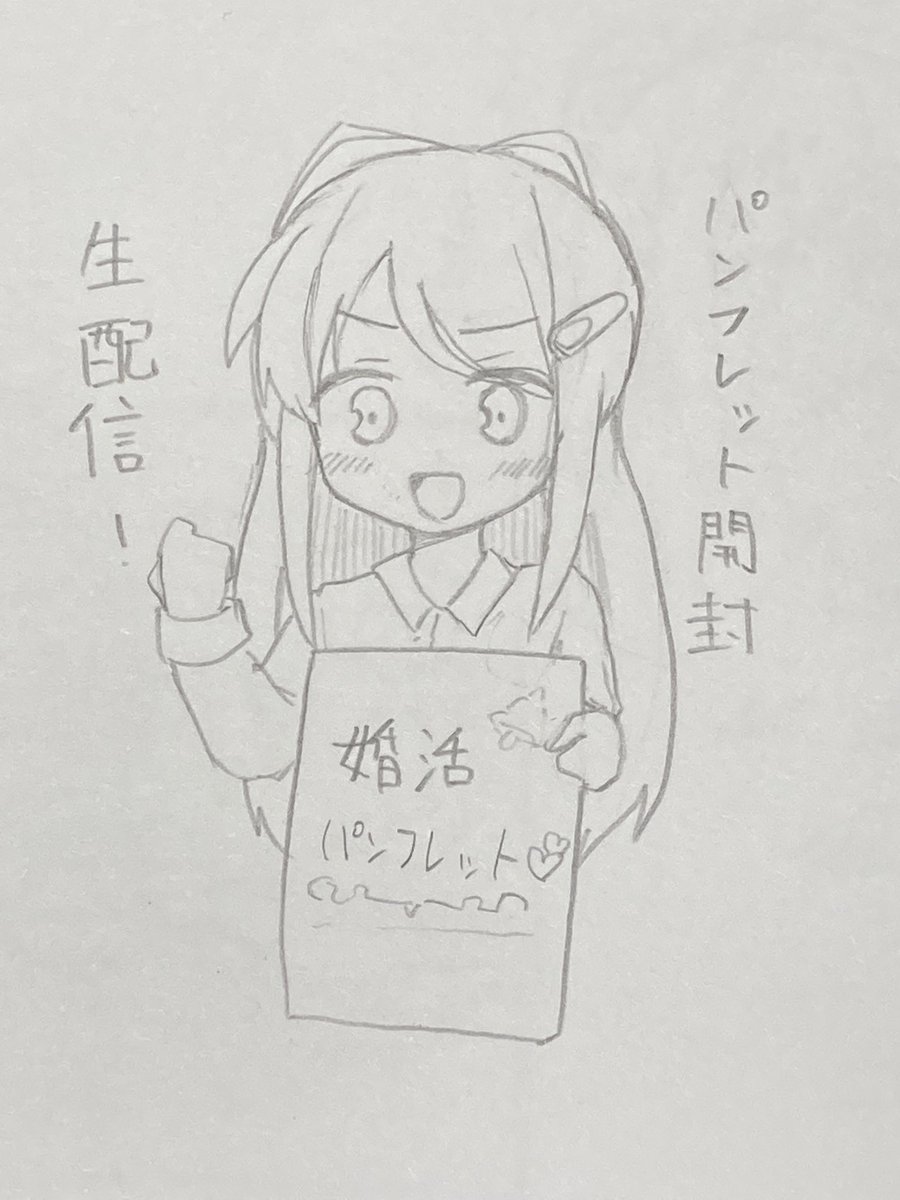 パンフレット開封
生配信！
婚活
パンフレット